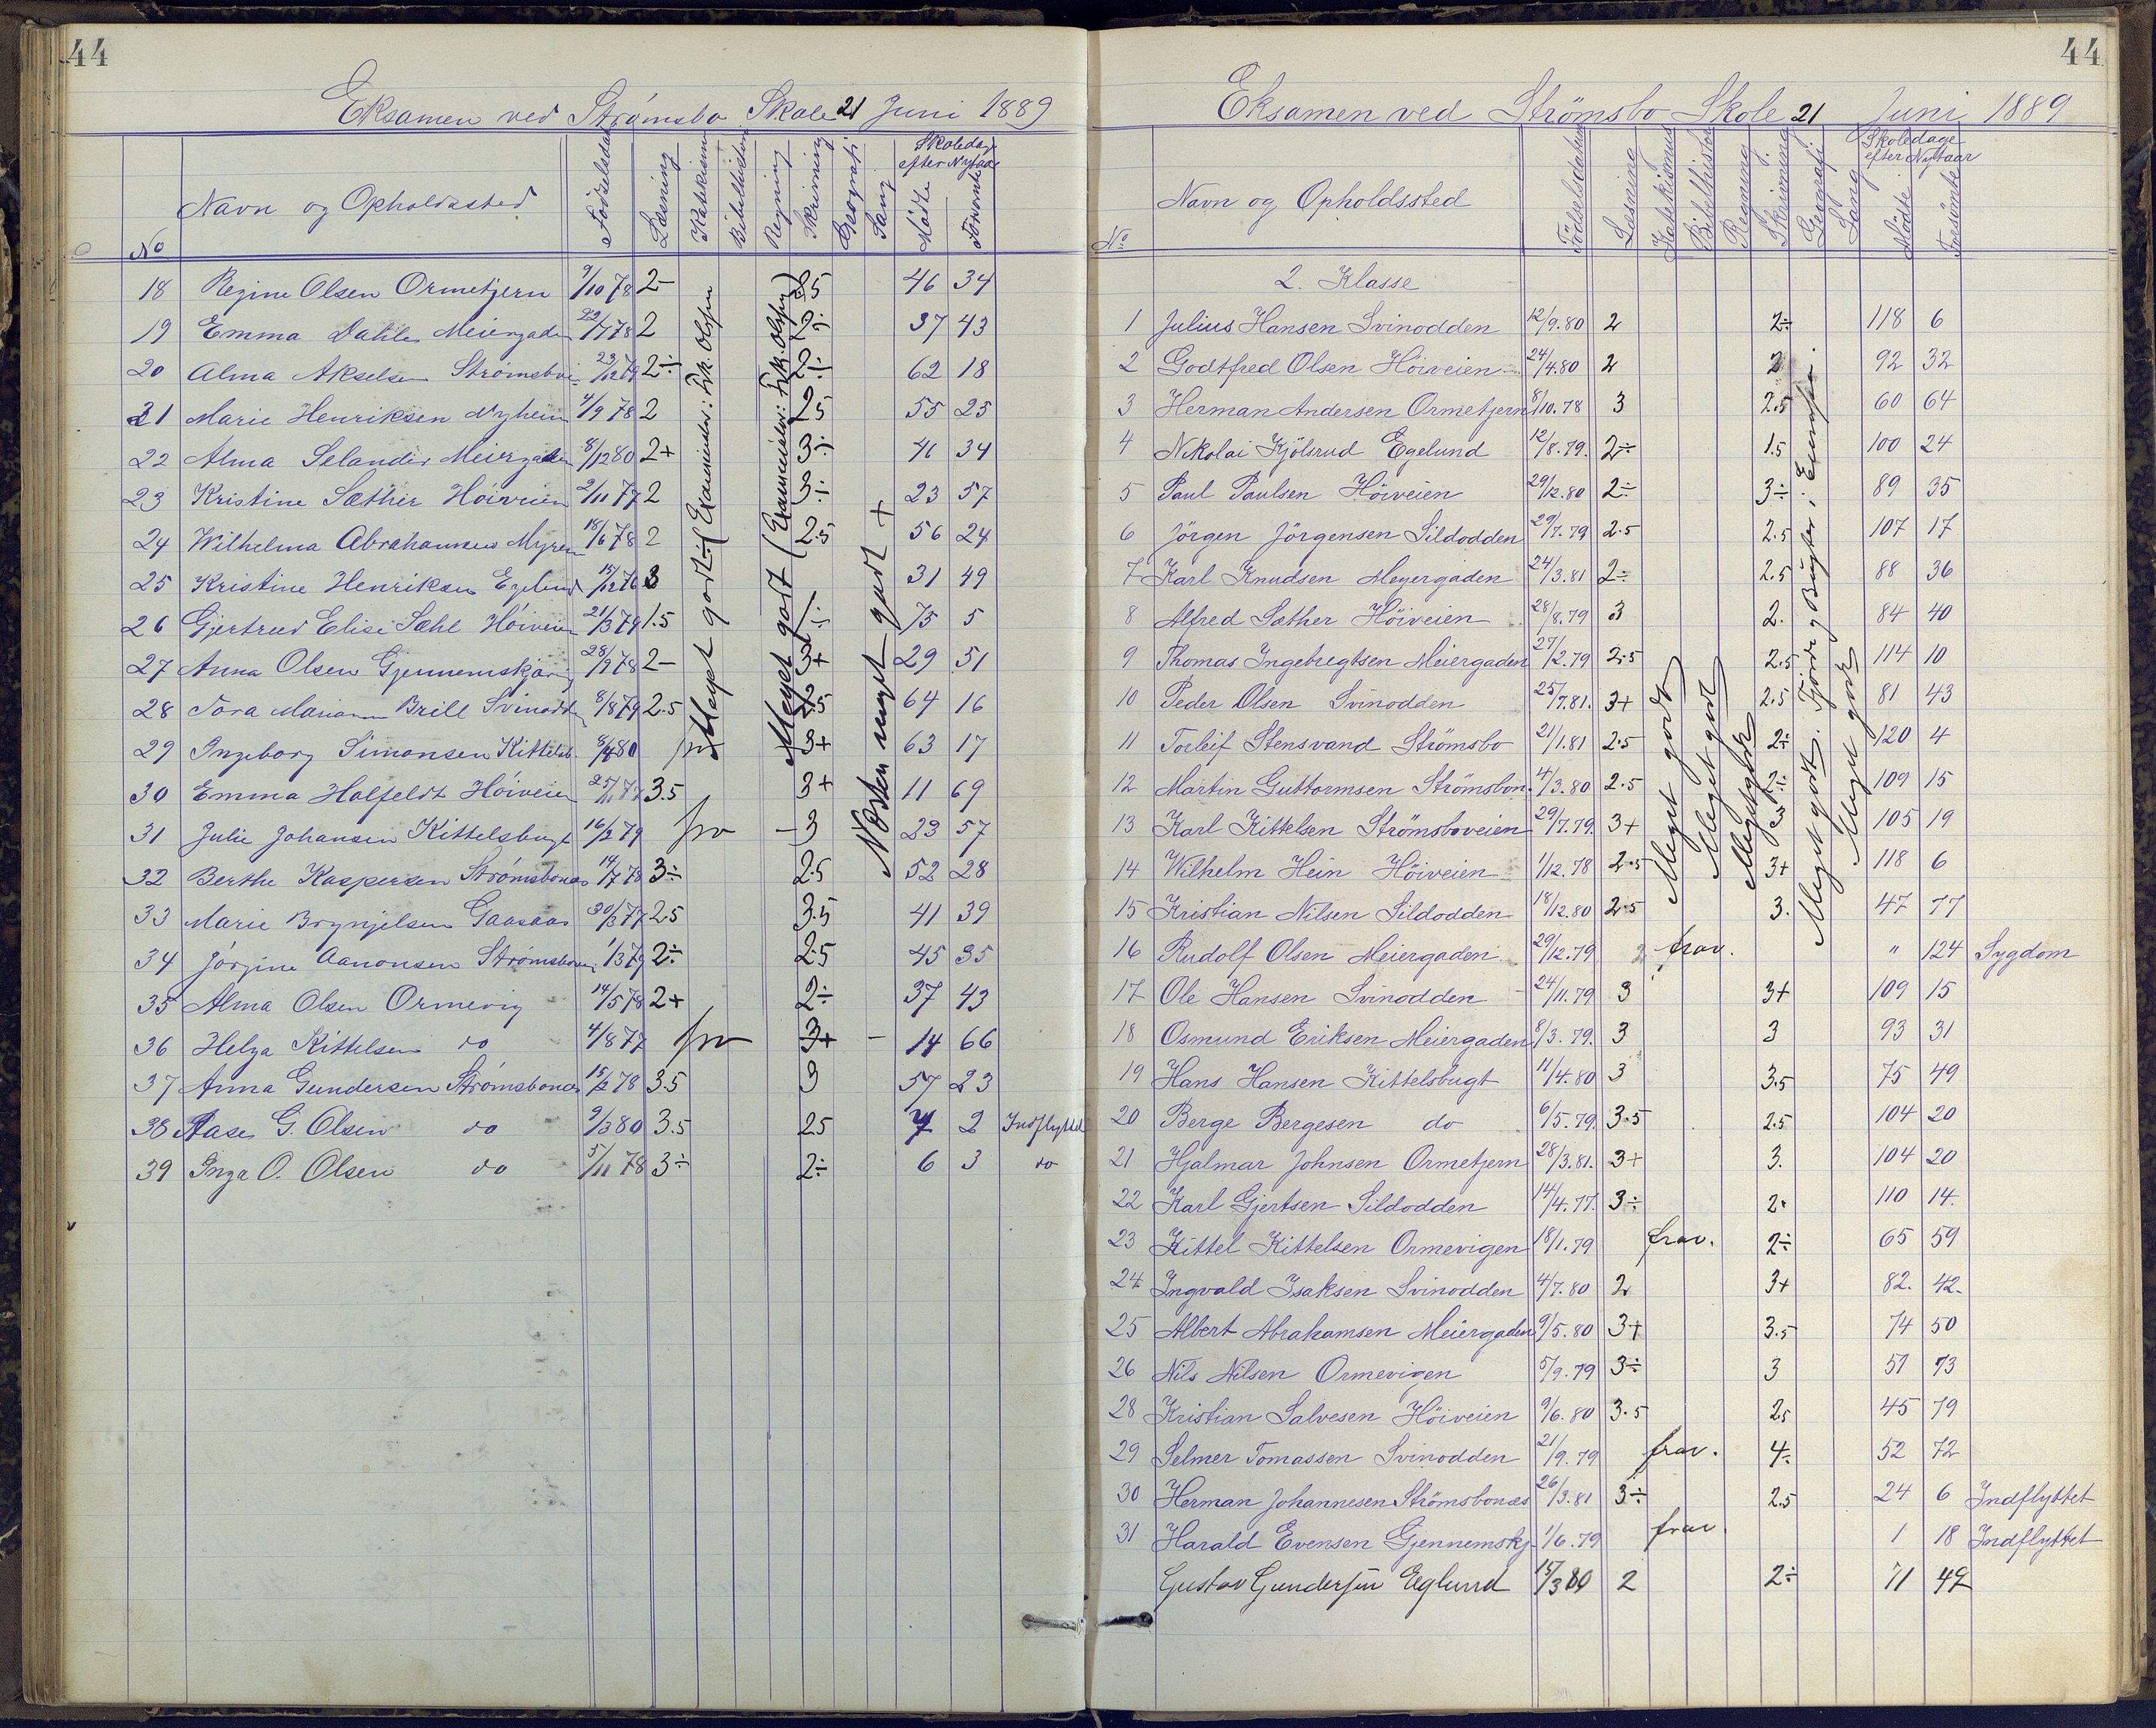 44
Eksamen ved Strømsbo Skole 21 Juni 1889
No Navn og Opholdssted Fødselsdag Læsning Katekismus Bibelhistorie Regning Skrivning Geografi Sang Skoledage efter Nytaar Mødte Forsømte
18 Regine Olsen Ormetjern 9/10 78 2- 35 46 34
19 Emma Dahle Meiergaden 22/7 78 2 2÷ 37 43
20 Alma Akselsen Strømsbvei 23/12 79 2÷ 2÷ 62 18
21 Marie Henriksen Nyheim 4/9 78 2 25 55 25
22 Alma Selander Meiergaden 8/12 80 2+ 3÷ 46 34
23 Kristine Sæther Høiveien 2/11 77 2 3÷ 23 57
24 Wilhelma Abrahamsen Myren 18/6 78 2 2.5 56 24
25 Kristine Henriksen Egelund 15/12 76 3 31 49
26 Gjertrud Elise Sæhl Høiveien 21/3 79 1.5 75 5
27 Anna Olsen Gjennemskjæring 28/9 78 2- 3+ 29 51
28 Tora Marianne Brill Svinodden 8/8 79 2.5 2.5 64 16
29 Ingeborg Simonsen Kittelsb. 8/4 80 frv 3+ 63 17
30 Emma Halfeldt Høiveien 25/11 77 3.5 3+ 11 69
31 Julie Johansen Kittelsbugt 16/2 79 frv - 3 23 57
32 Berthe Kaspersen Strømsbonæs 14/7 78 3÷ 2.5 52 28
33 Marie Brynjelsen Gaasaas 30/3 77 2.5 3.5 41 39
34 Jørgine Aanonsen Strømsbovei 1/3 79 2÷ 2.5 45 35
35 Alma Olsen Ormevig 14/5 78 2+ 2÷ 37 43
36 Helga Kittelsen do 4/8 77 frv 3+ - 14 66
37 Anna Gundersen Strømsbonæs 15/2 78 3.5 3 57 23
38 Aase G. Olsen do 9/3 80 3.5 25 7 2 Indflyttet
39 Inga O. Olsen do 5/11 78 3÷ 2÷ 6 3 do
Meget godt÷ (Examinator: Frk. Olsen
Meget godt (Examinator: Frk. Olsen)
Næsten meget godt +
44
Eksamen ved Strömsbo Skole 21 Juni 1889
No Navn og Opholdssted Födselsdatum Læsning Katekismus Bibelhistorie Regning Skrivning Geografi Sang Skoledage efter Nyttaar Mödte Forsömte
2. Klasse
1 Julius Hansen Svinodden 12/9.80 2 2÷ 118 6
2 Godtfred Olsen Höiveien 24/4.80 2 2 92 32
3 Herman Andersen Ormetjern 8/10.78 3 2.5 60 64
4 Nikolai Kjölsrud Egelund 12/8.79. 2÷ 1.5 100 24
5 Paul Paulsen Höiveien 29/12.80 2÷ 3÷ 89 35
6 Jörgen Jörgensen Sildodden 29/7.79 2.5 2.5 107 17
7 Karl Knudsen Meyergaden 24/3.81 2÷ 2.5 88 36
8 Alfred Sæther Höiveien 28/8.79 3 2. 84 40
9 Thomas Ingebregtsen Meiergaden 27/2.79 2.5 2.5 114 10
10 Peder Olsen Svinodden 25/7.81. 3+ 2.5 81 43
11 Torleif Stensvand Strömsbo 21/1.81 2.5 2÷ 120 4
12 Martin Guttormsen Strömsbon. 4/3.80 2.5 2÷ 109 15
13 Karl Kittelsen Strömsboveien 29/7.79. 3+ 3 105 19
14 Wilhelm Hein Höiveien 1/12.78 2.5 3+ 118 6
15 Kristian Nilsen Sildodden 18/12.80 2.5 3. 47 77
16 Rudolf Olsen Meiergaden 29/12.79 frav. " 124 Sygdom
17 Ole Hansen Svinodden 24/11.79 3 3+ 109 15
18 Osmund Eriksen Meiergaden 8/3.79. 3 3 93 31
19 Hans Hansen Kittelsbugt 11/4.80 3 3.5 75 49
20 Berge Bergesen do 6/5.79. 3.5 2.5 104 20
21 Hjalmar Johnsen Ormetjern 28/3.81. 3+ 3. 104 20
22 Karl Gjertsen Sildodden 14/4.77. 3÷ 2. 110 14.
23 Kittel Kittelsen Ormevigen 18/1.79 frav. 2÷ 65 59
24 Ingvald Isaksen Svinodden 4/7.80 2 3+ 82. 42.
25 Albert Abrahamsen Meiergaden 9/5.80 3+ 3.5 74 50
26 Nils Nilsen Ormevigen 5/9.79 3÷ 3 51 73
28 Kristian Salvesen Höiveien 9/6.80 3.5 2.5 45 79
29 Selmer Tomassen Svinodden 21/9.79 frav. 4÷ 52 72
30 Herman Johannesen Strömsbonæs 26/3.81 3÷ 2.5 24 6 Indflyttet
31 Harald Evensen Gjennemskj. 1/6.79 frav. 1 18 Indflyttet
Gustav Gundersen Eglund 15/3 80 2 2÷ 71 49
Meget godt
Meget godt
Meget godt
Meget godt. Fjorde og Bugter i Europa.
Meget godt